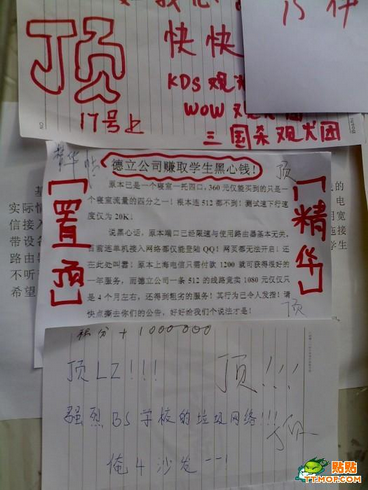 15
顶
快快
17号上
KDS观光
WOW观光
三国杀观光团
德立公司赚取学生黑心钱!
顶
原本已是一个寝室一托四口,360元仅能买到的只是一
个寝室流量的四分之一!根本连512都不到!测试速下行速
度仅为20K;
说黑心话,原本端口已经限速与使用路由器基本无异,
在此处叫嚣:原本上海电信只需付款1200就可获得很好的
一年服务,而德立公司一条512的线路竟实1080元仅仅只
是4个月左右,还得到租劣的服务!其行为已令人发指!请
快点撕去你们的公告,好好给我们个说法才是!
【置顶】
【精华】
顶
实际情
信接入
带设备
路由器
不听
希望
积分+1000000
顶LZ!!!
顶!!!
强烈BS学校的垃圾网络!!!
顶
俺4沙发——!
贴贴
TT.MOP.COM